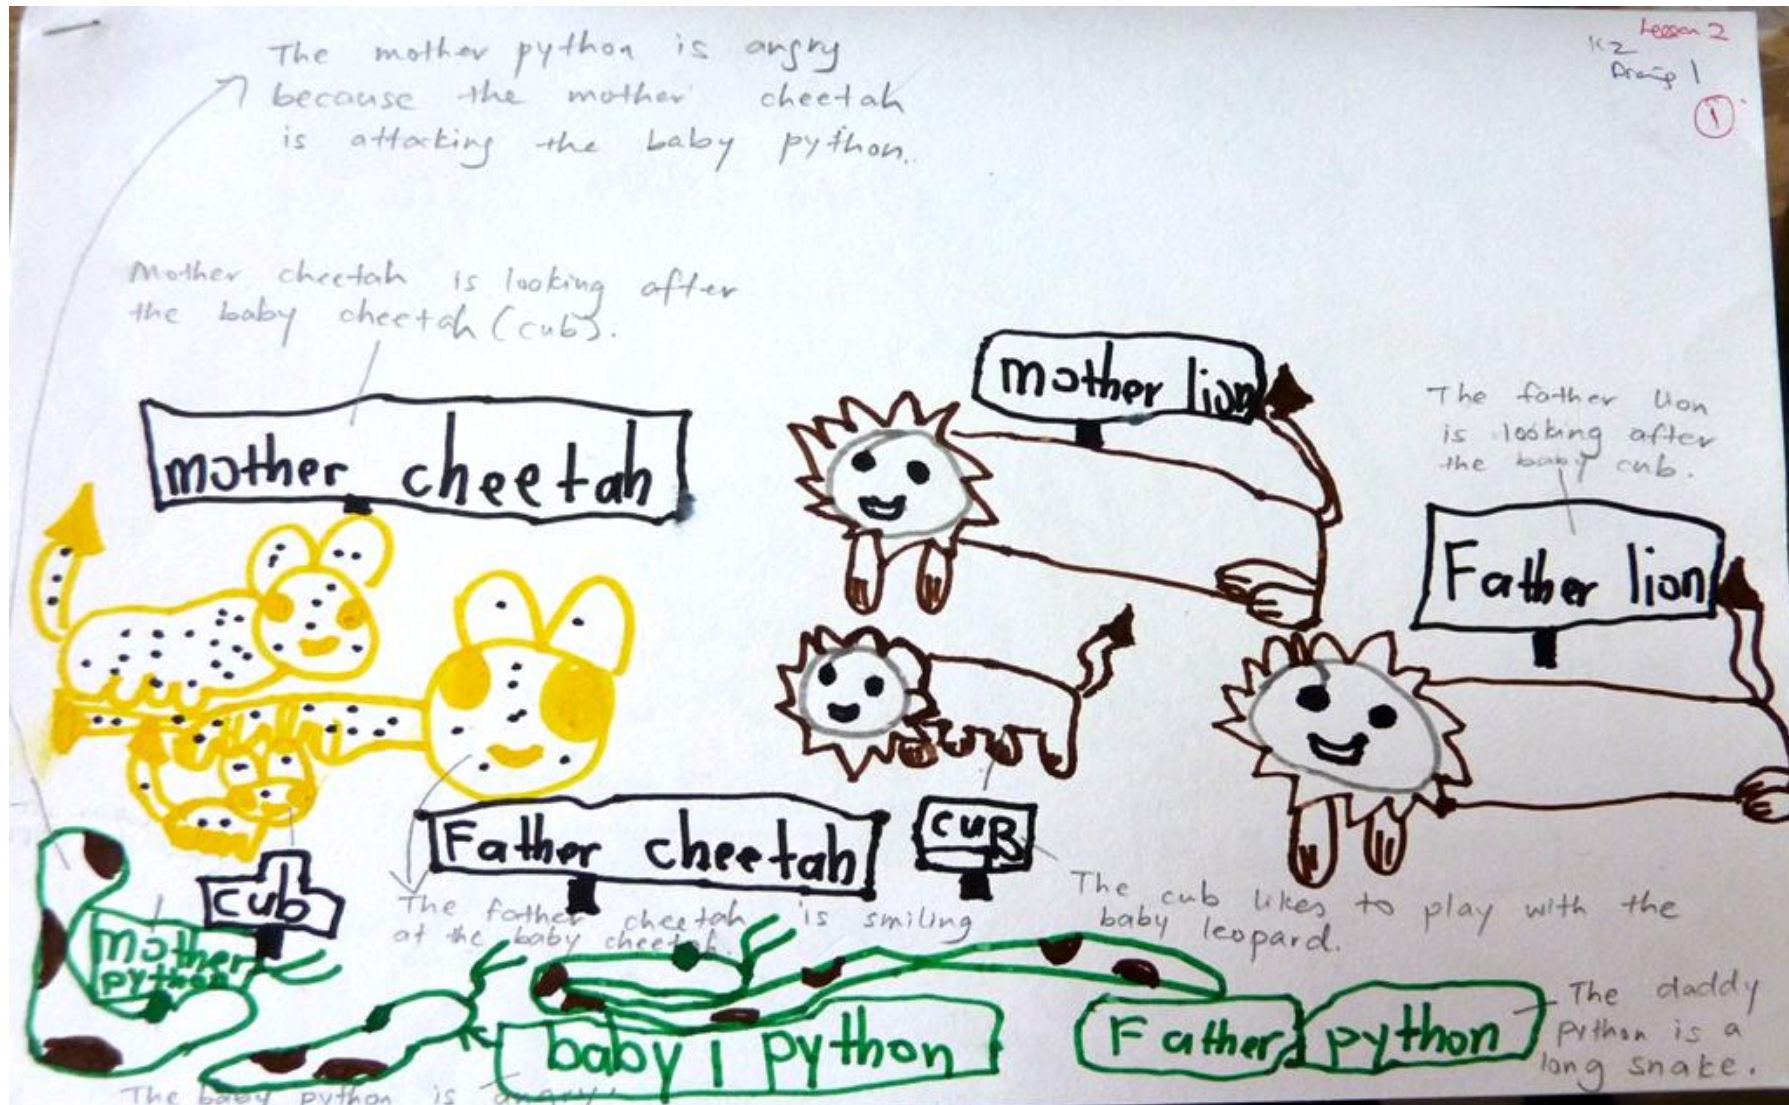 Lesson 2
K2
1
1
The mother python is angry
because the mother cheetah
is attacking the baby python.
Mother cheetah is looking after
the baby cheetah (cub).
mother cheetah
mother lion
The father lion
is looking after
the baby cub.
Father lion
Father cheetah
cuB
cub
The father cheetah is smiling
at the baby cheetah.
The cub likes to play with the
baby leopard.
mother
python
baby 1 python
Father python
The daddy
python is a
long snake.
The baby python is angry.